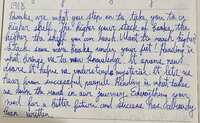 Books are what you step on to take you to a
higher shelf. The higher your stack of books, the
higher the shelf you can reach. Want to reach higher?
Stack some more books under your feet! Reading is
what brings us to new knowledge. It opens new
doors. It helps us understand mysteries. It lets us
hear from successful people. Reading is what takes
us down the road in our journey. Everything you
need for a better future and success has already
been written